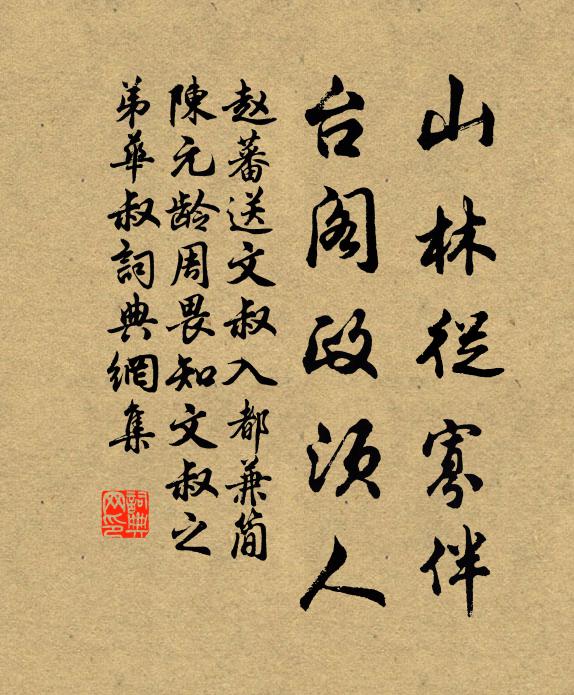 山林從寡伴
台阁政须人
赵蕃送文叔入都兼简
陳元龄周畏知文叔之
弟華叔詞典網集
詞典网印